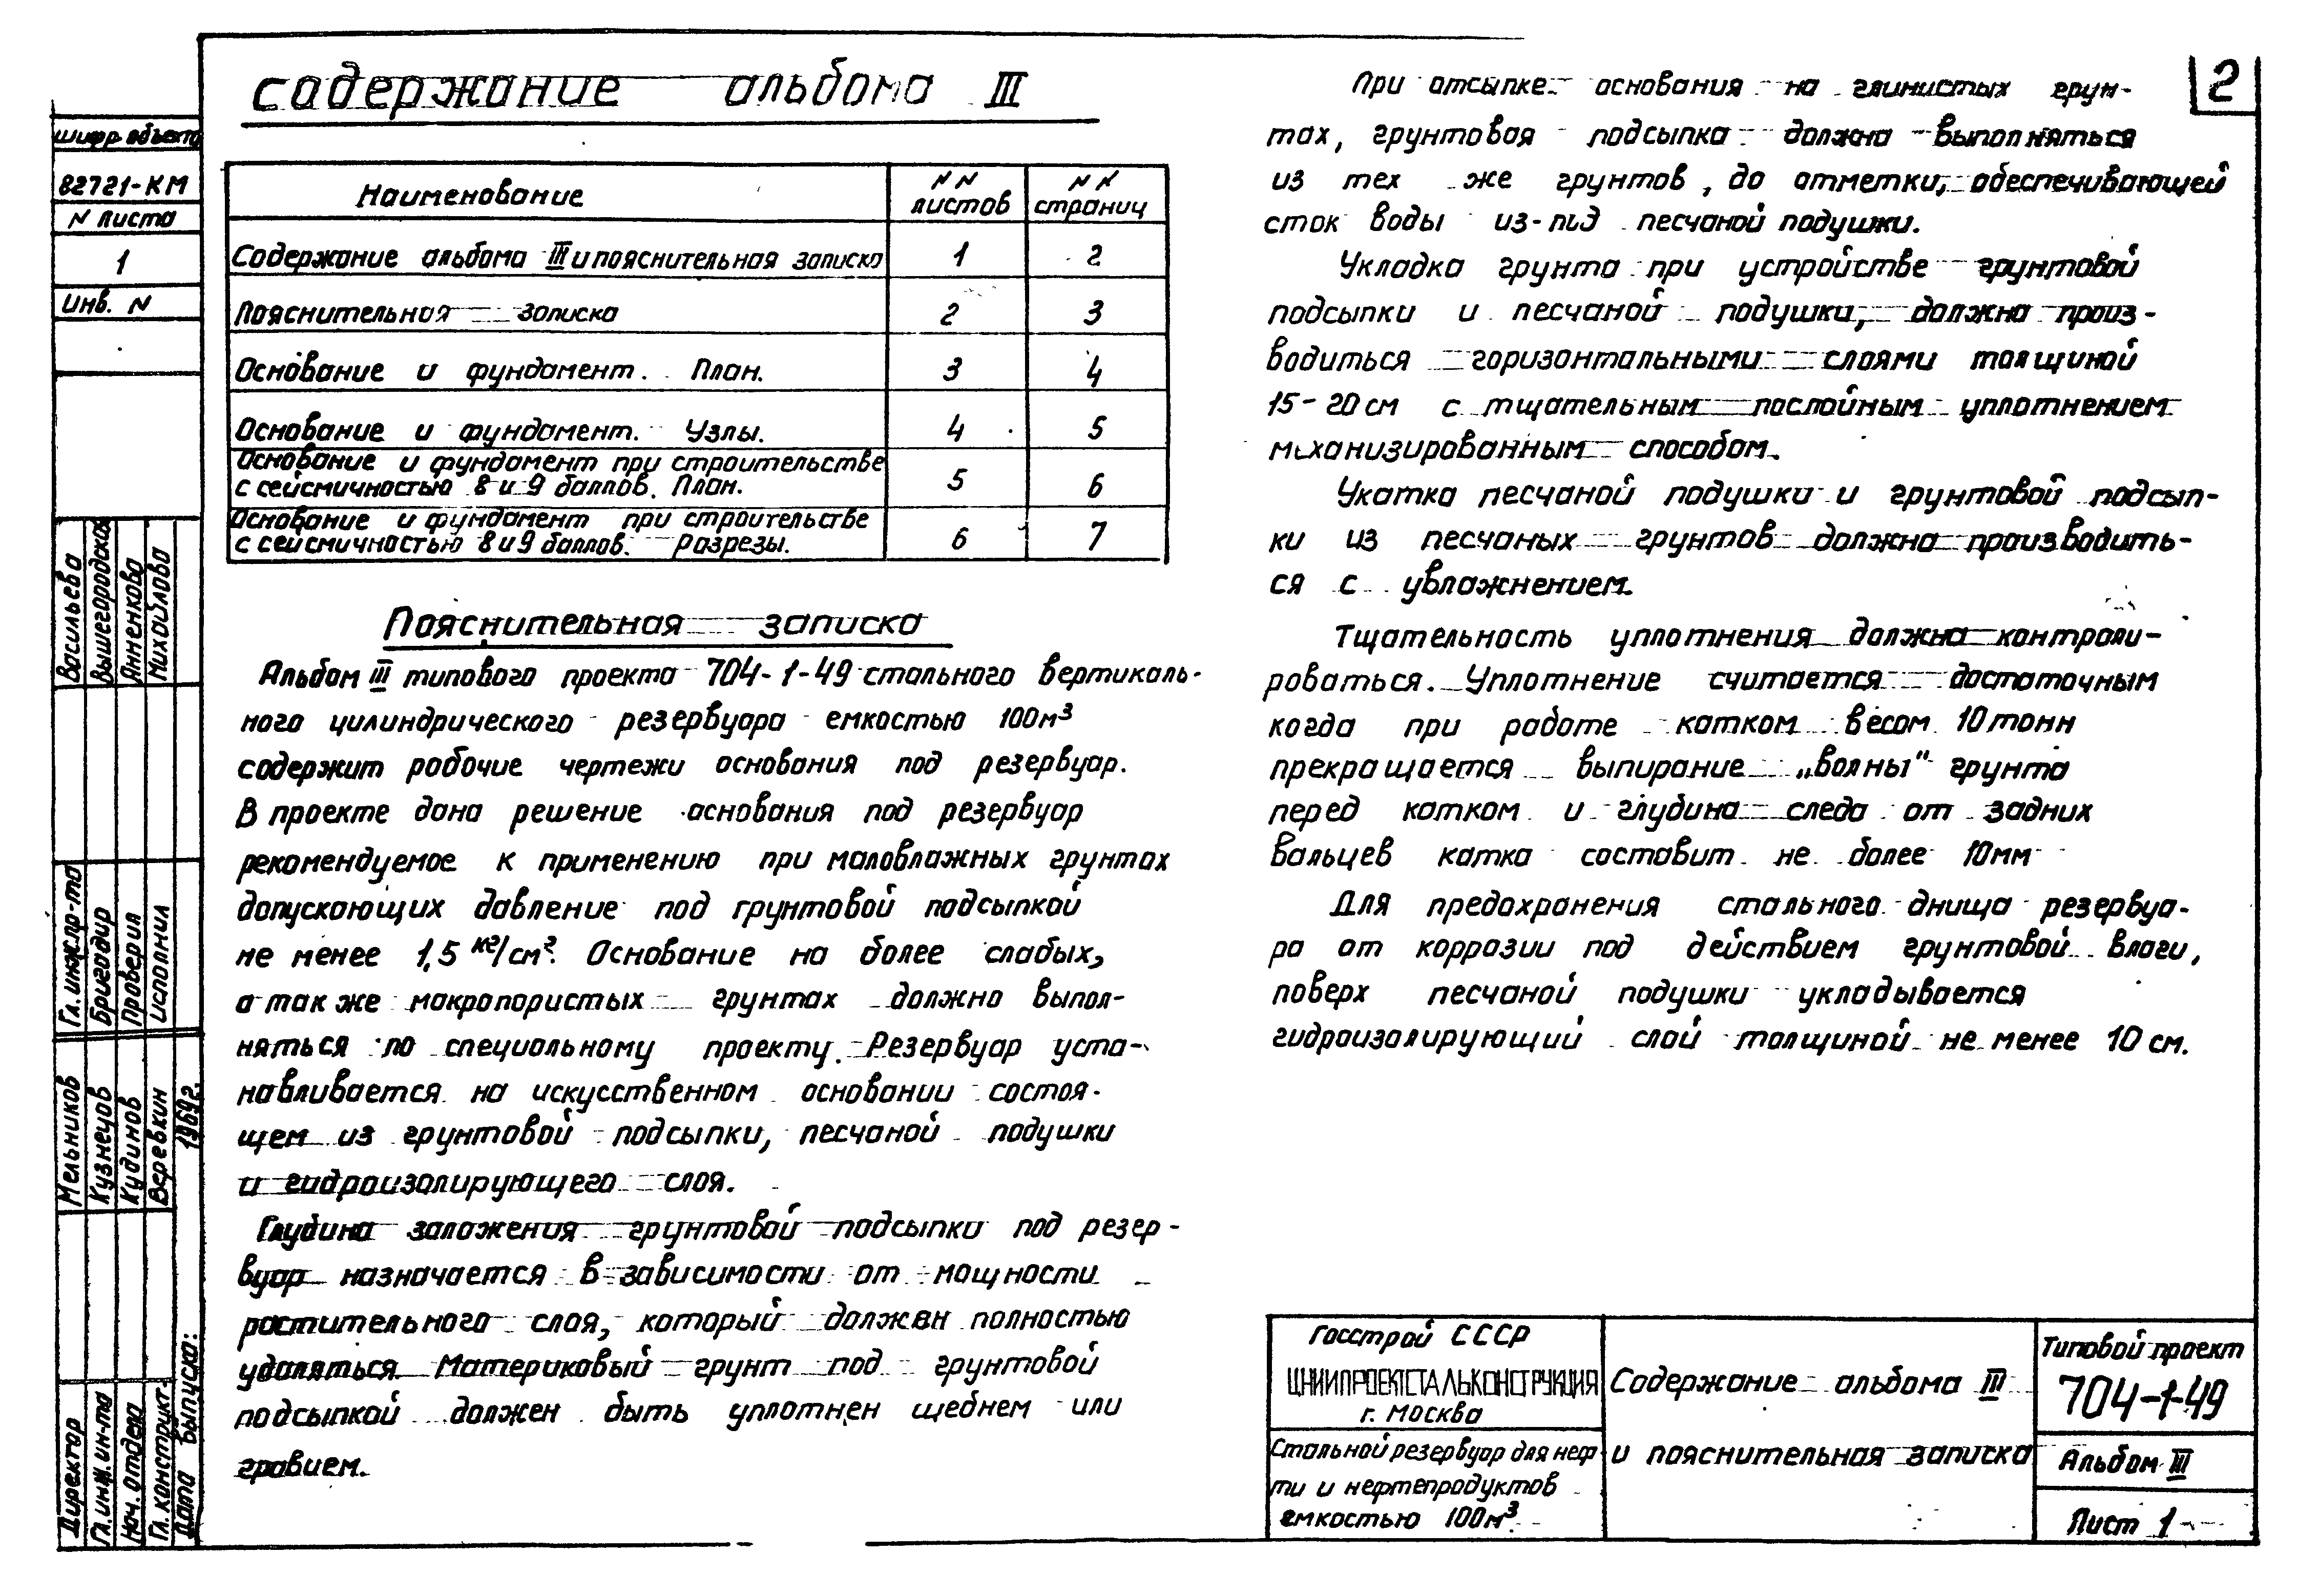 содержание альбома III
Наименование
NN листов
NN страниц
Содержание альбома III и пояснительная записка 1 2
Пояснительная записка 2 3
Основание и фундамент. План. 3 4
Основание и фундамент. Узлы. 4 5
Основание и фундамент при строительстве
с сейсмичностью 8 и 9 баллов. План. 5 6
Основание и фундамент при строительстве
с сейсмичностью 8 и 9 баллов. Разрезы. 6 7
Пояснительная записка
Альбом III типового проекта 704-1-49 стального вертикаль-
ного цилиндрического резервуара емкостью 100м³
содержит рабочие чертежи основания под резервуар.
В проекте дано решение основания под резервуар
рекомендуемое к применению при маловлажных грунтах
допускающих давление под грунтовой подсыпкой
не менее 1,5 кг/см². Основание на более слабых,
а так же макропористых грунтах должно выпол-
няться по специальному проекту. Резервуар уста-
навливается на искусственном основании состоя-
щем из грунтовой подсыпки, песчаной подушки
и гидроизолирующего слоя.
Глубина заложения грунтовой подсыпки под резер-
вуар назначается в зависимости от мощности
растительного слоя, который должен полностью
удаляться. Материковый грунт под грунтовой
подсыпкой должен быть уплотнен щебнем или
гравием.
2
При отсыпке основания на глинистых грун-
тах, грунтовая подсыпка должна выполняться
из тех же грунтов, до отметки, обеспечивающей
сток воды из-под песчаной подушки.
Укладка грунта при устройстве грунтовой
подсыпки и песчаной подушки, должна произ-
водиться горизонтальными слоями толщиной
15-20см с тщательным послойным уплотнением
механизированным способом.
Укатка песчаной подушки и грунтовой подсып-
ки из песчаных грунтов должна производить-
ся с увлажнением.
Тщательность уплотнения должна контроли-
роваться. Уплотнение считается достаточным
когда при работе катком весом 10 тонн
прекращается выпирание „волны" грунта
перед катком и глубина следа от задних
вальцев катка составит не более 10мм
Для предохранения стального днища резервуа-
ра от коррозии под действием грунтовой влаги,
поверх песчаной подушки укладывается
гидроизолирующий слой толщиной не менее 10 см.
Госстрой СССР
ЦНИИПРОЕКТСТАЛЬКОНСТРУКЦИЯ
г. Москва
Стальной резервуар для неф-
ти и нефтепродуктов
емкостью 100м³
Содержание альбома III
и пояснительная записка
Типовой проект
704-1-49
Альбом III
Лист 1
шифр объекта
82721-КМ
N листа
1
Инв. N
Васильева
Вышегородская
Анненкова
Михайлова
Гл. инж. пр-та
Бригадир
Проверил
Исполнил
Мельников
Кузнецов
Кудинов
Веревкин
1969г.
Директор
Гл. инж. ин-та
Нач. отдела
Гл. конструкт.
Дата выпуска: